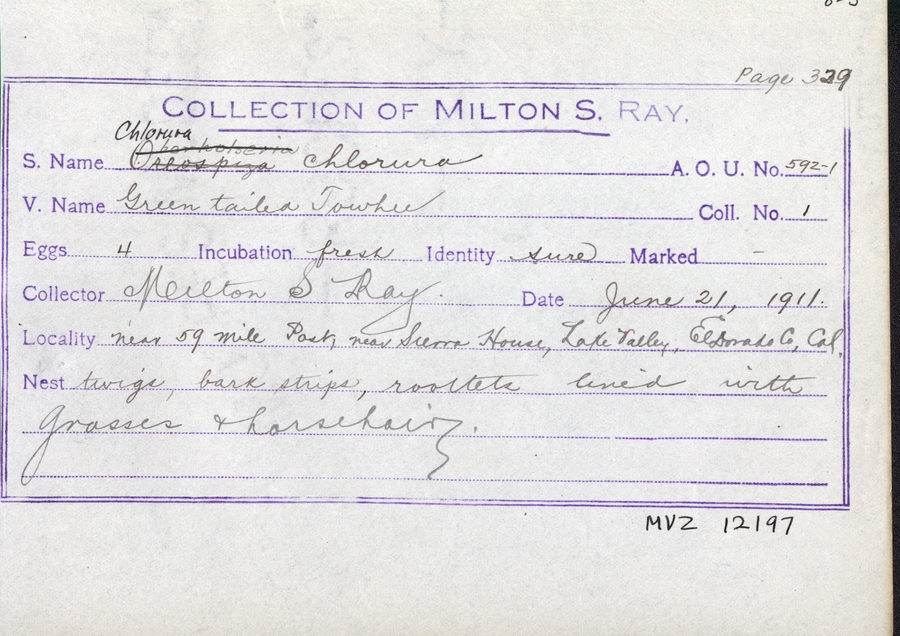 Page 329
COLLECTION OF MILTON S. RAY.
Chlorura
S. Name Oreospiza chlorura A. O. U. No. 592-1
V. Name Green tailed Towhee Coll. No. 1
Eggs 4 Incubation fresh Identity sure Marked –
Collector Milton S Ray. Date June 21, 1911.
Locality near 59 mile Post, near Sierra House, Lake Valley, El Dorado Co, Cal.
Nest twigs, bark strips, rootlets lined with
grasses & horsehair.
MVZ 12197